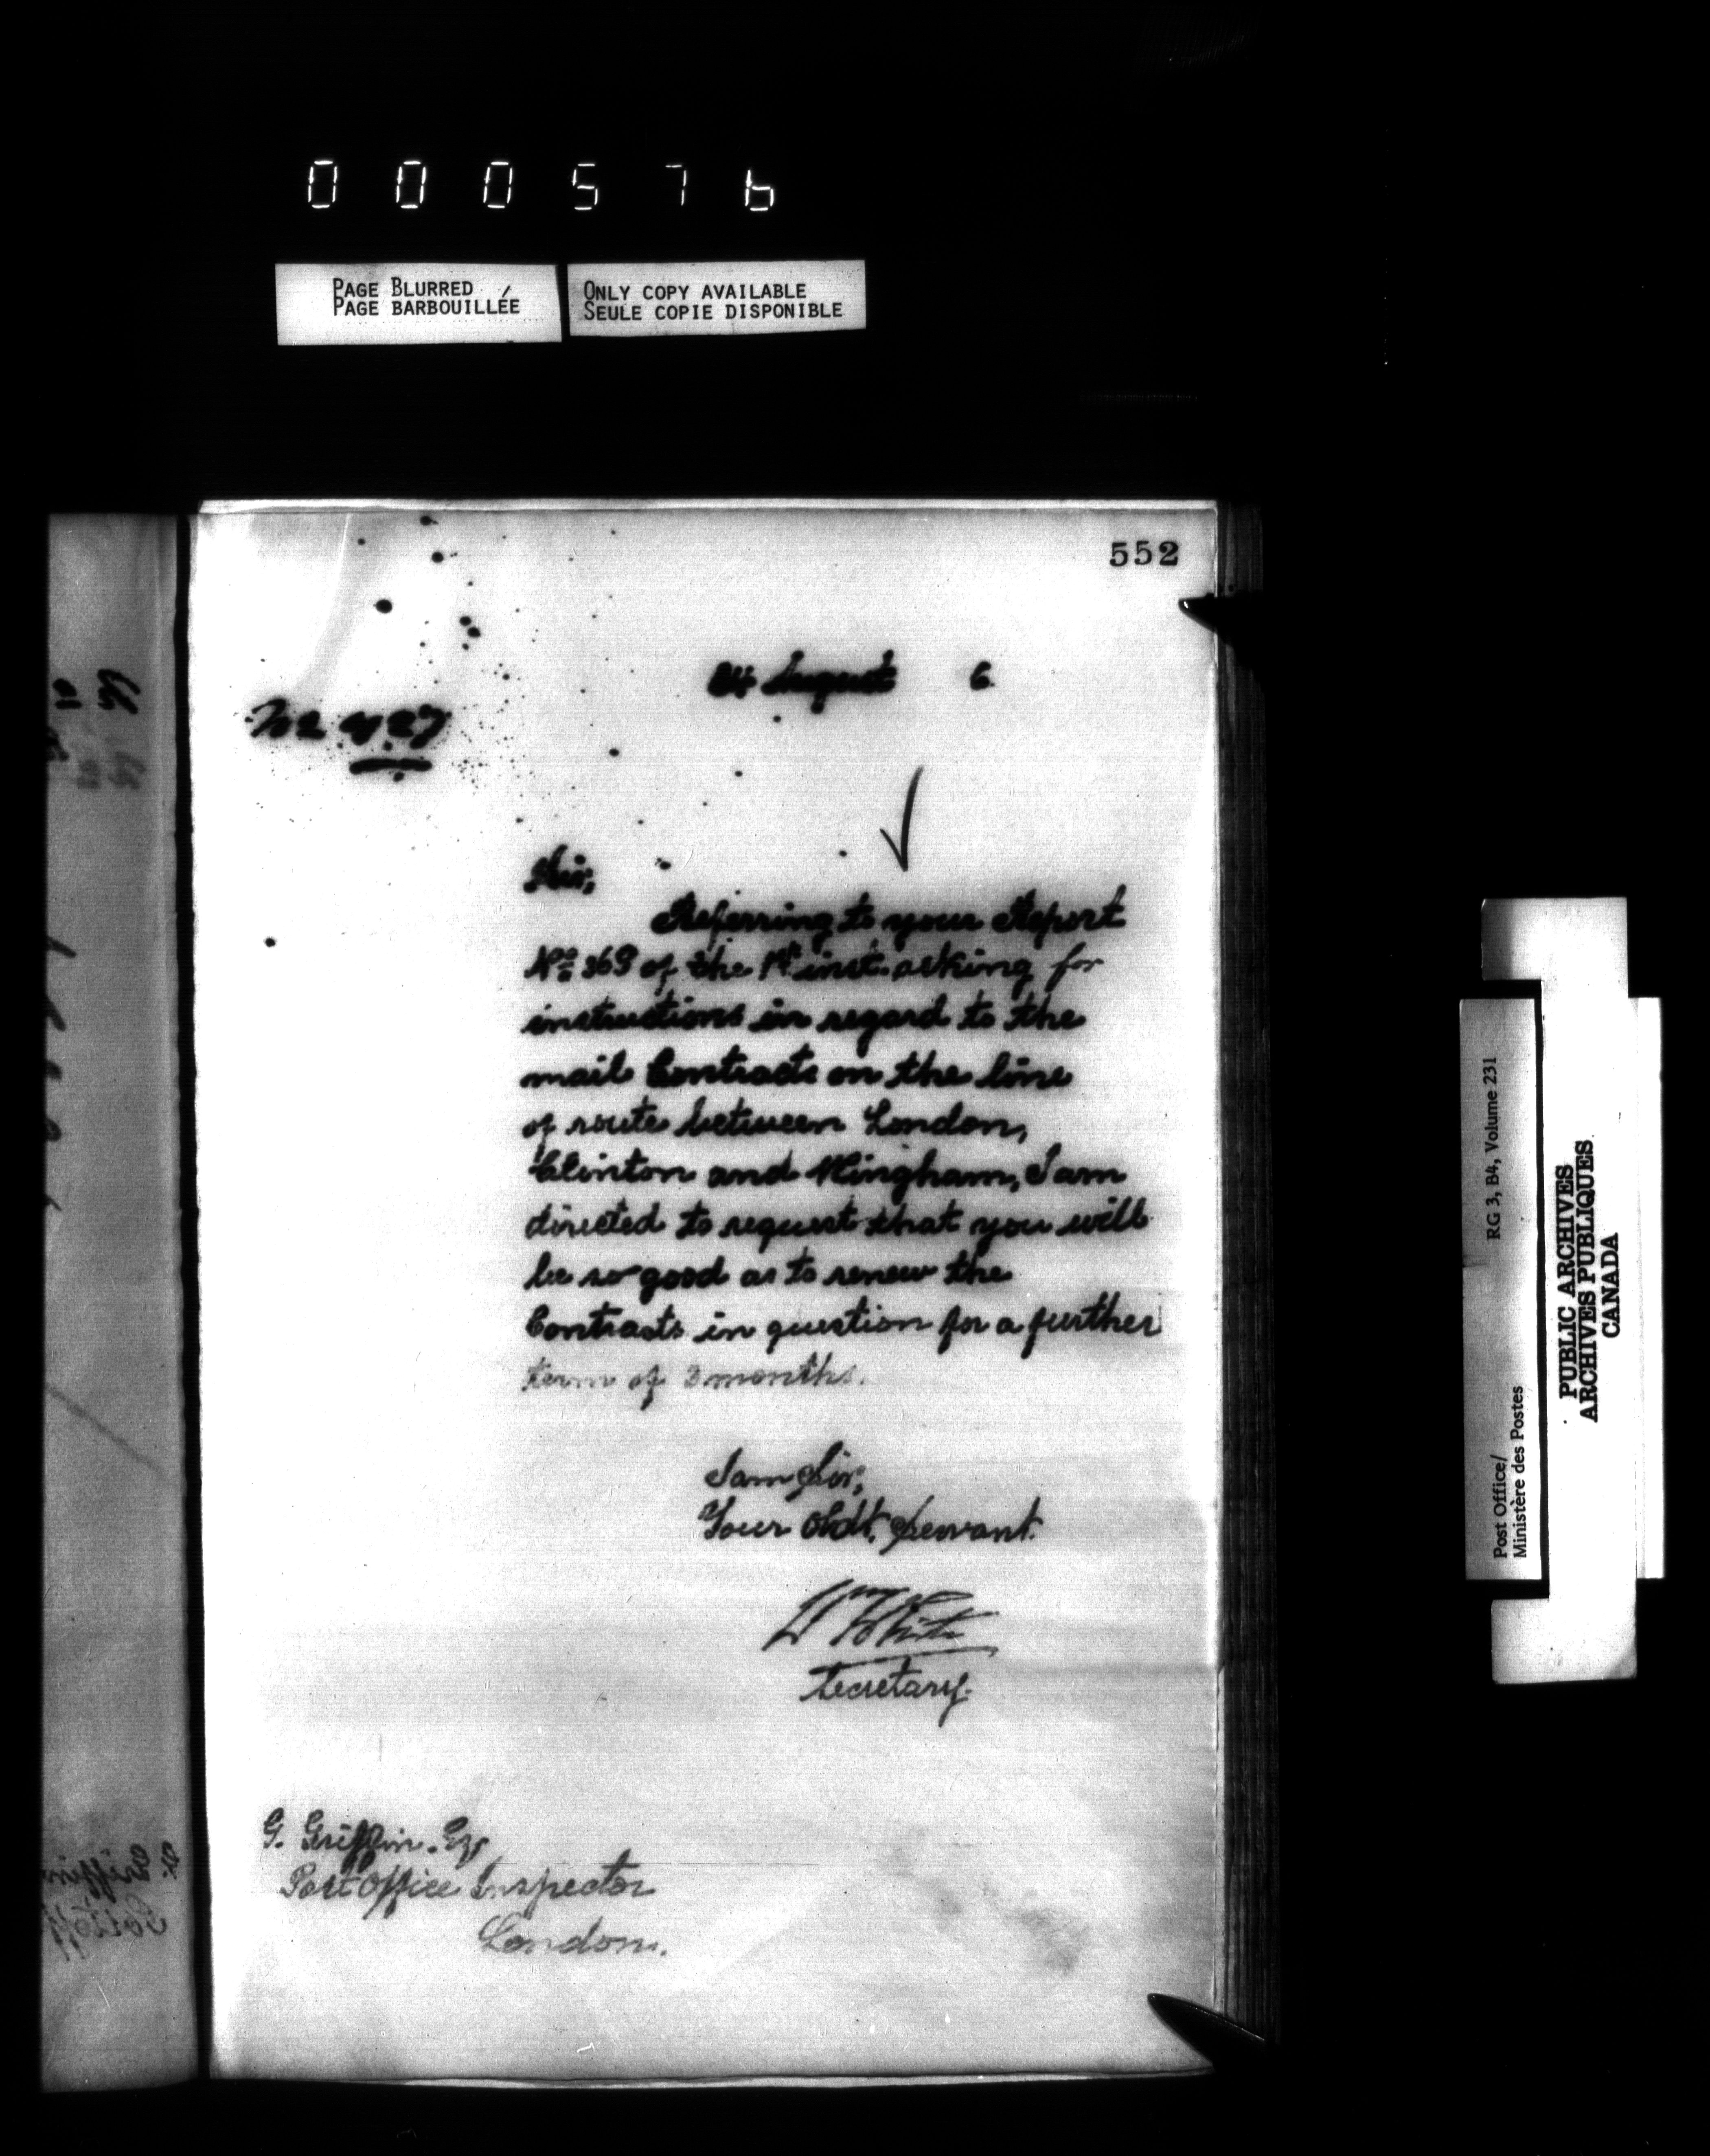 000576
PAGE BLURRED
PAGE BARBOUILLÉE
ONLY COPY AVAILABLE
SEULE COPIE DISPONIBLE
552
24 August 6
Sir,
Referring to your Report
No 369 of the 1st inst. asking for
instructions in regard to the
mail Contracts on the line
of route between London,
Clinton and Wingham, I am
directed to request that you will
be so good as to renew the
Contracts in question for a further
term of 3 months.
I am Sir,
Your Obdt. Servant.
W White
Secretary.
G. Griffin. Esq
Post Office Inspector
London.
Post Office/
Ministère des Postes
RG 3, B4, Volume 231
PUBLIC ARCHIVES
ARCHIVES PUBLIQUES
CANADA